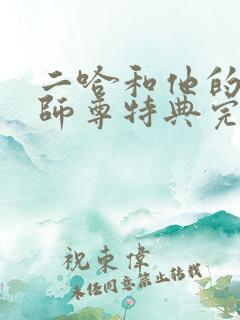 二哈和他的
師尊特典完
祝東偉
未经同意禁止转载